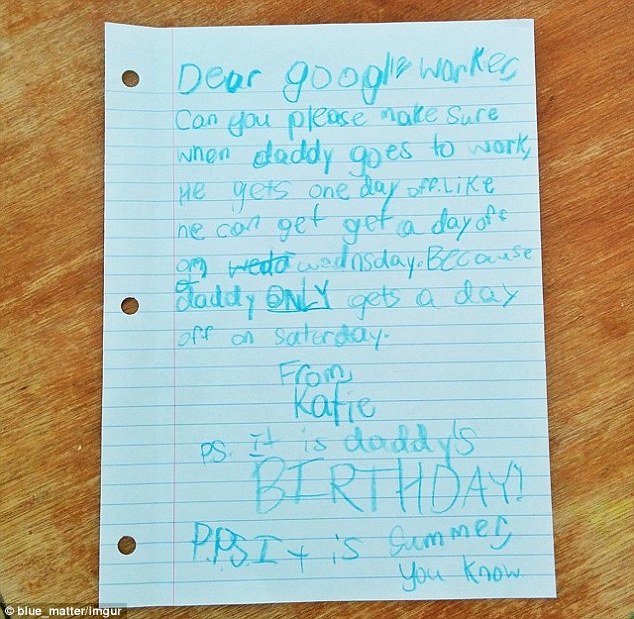 Dear google worker,
Can you please make sure
when daddy goes to work,
He gets one day off. Like
he can get get a day off
on wednsday. BECause
daddy ONLY gets a day
off on saturday.
From,
Katie
PS. It is daddy's
BIRTHDAY!
P.P.S. It is summer,
you know
© blue_matter/Imgur